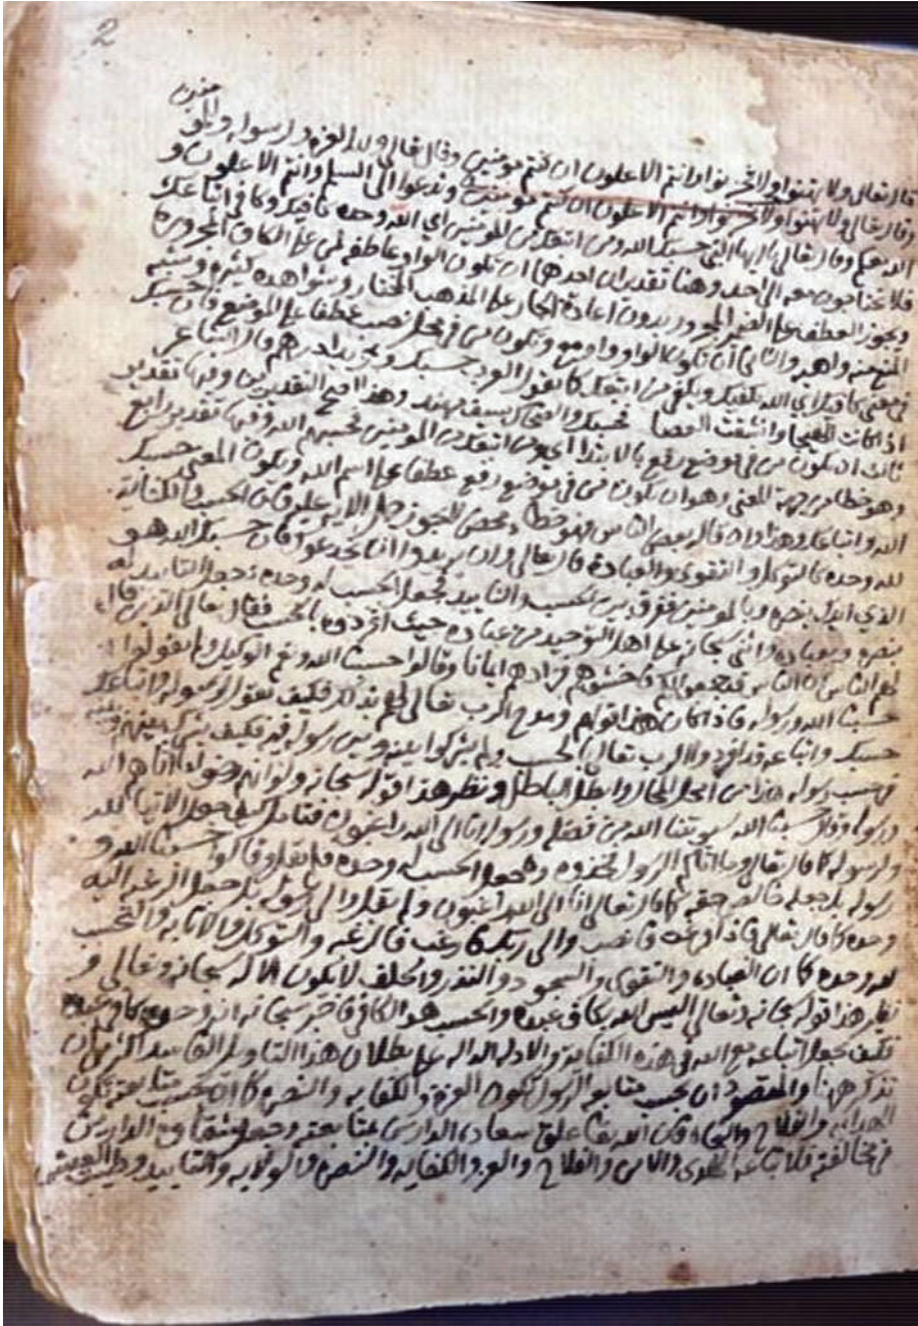 منين
قال تعالى ولا تهنوا ولا تحزنوا وانتم الاعلون ان كنتم مومنين وقال تعالى ولله العزة ولرسوله وللمو
وقال تعالى ولا تهنوا ولا تحزنوا وانتم الاعلون ان كنتم مومنين وتدعوا الى السلم وانتم الاعلون و
الله معكم وقال تعالى يا ايها النبي حسبك الله ومن اتبعك من المومنين اي الله وحده كافيك وكافي اتباعك
فلا تحتاجون معه الى احد وهنا تقديران احدهما ان تكون الواو عاطفة لمن على الكاف المجرورة
ويجوز العطف على الضمير المجرور بدون اعادة الجار على المذهب المختار وشواهده كثيرة وشبه
المنع منه واهية والثاني ان تكون الواو واو مع وتكون من في محل نصب عطفا على الموضع فان حسبك
في معنى كافيك اي الله يكفيك ويكفي من اتبعك كما تقول العرب حسبك وزيدا درهم قال الشاعر
اذا كانت الهيجا وانشقت العصا فحسبك والضحاك سيف مهند وهذا اصح التقديرين وفيها تقدير
ثالث ان تكون من في موضع رفع بالابتدا اي ومن اتبعك من المومنين فحسبهم الله وفيها تقدير رابع
وهو خطا من جهة المعنى وهو ان تكون من في موضع رفع عطفا على اسم الله ويكون المعنى حسبك
الله واتباعك وهذا وان قال بعض الناس فهو خطا محض لا يجوز حمل الاية عليه فان الحسب والكفاية
لله وحده كالتوكل والتقوى والعبادة قال تعالى وان يريدوا ان يخدعوك فان حسبك الله هو
الذي ايدك بنصره وبالمومنين ففرق بين الحسب والتاييد فجعل الحسب له وحده وجعل التاييد له
بنصره وبعباده واثنى سبحانه على اهل التوحيد من عباده حيث افردوه بالحسب فقال تعالى الذين قال
لهم الناس ان الناس قد جمعوا لكم فاخشوهم فزادهم ايمانا وقالوا حسبنا الله ونعم الوكيل ولم يقولوا
حسبنا الله ورسوله فاذا كان هذا قولهم ومدح الرب تعالى لهم بذلك فكيف نقول لرسوله واتباعك
حسبك واتباعه قد افردوا الرب تعالى بالحسب ولم يشركوا بينه وبين رسوله فيه فكيف يشرك بينهم وبينه
في حسب رسوله هذا من امحل المحال وابطل الباطل ونظير هذا قوله سبحانه ولو انهم رضوا ما اتاهم الله
ورسوله وقالوا حسبنا الله سيوتينا الله من فضله ورسوله انا الى الله راغبون فتامل كيف جعل الايتا لله
ولرسوله كما قال تعالى وما اتاكم الرسول فخذوه وجعل الحسب له وحده فلم يقل وقالوا حسبنا الله و
رسوله بل جعله خالص حقه كما قال تعالى انا الى الله راغبون ولم يقل والى رسوله بل جعل الرغبة اليه
وحده كما قال تعالى فاذا فرغت فانصب والى ربك فارغب فالرغبة والتوكل والانابة والتحسب
لله وحده كما ان العبادة والتقوى والسجود والنذر والحلف لا يكون الا له سبحانه وتعالى و
نظير هذا قوله سبحانه وتعالى اليس الله بكاف عبده والحسب هو الكافي فاخبر سبحانه انه وحده كافي عبده
فكيف يجعل اتباعه مع الله في هذه الكفاية والادلة الدالة على بطلان هذا التاويل الفاسد اكثر من ان
تذكر ههنا والمقصود ان بحسب متابعة الرسول تكون العزة والكفاية والنصرة كما ان بحسب متابعته تكون
الهداية والفلاح والنجاة فان الله تعالى علق سعادة الدارين بمتابعته وجعل شقاوة الدارين
في مخالفته فلاتباعه الهدى والامن والفلاح والعزة والكفاية والنصرة والولاية والتاييد وطيب العيش